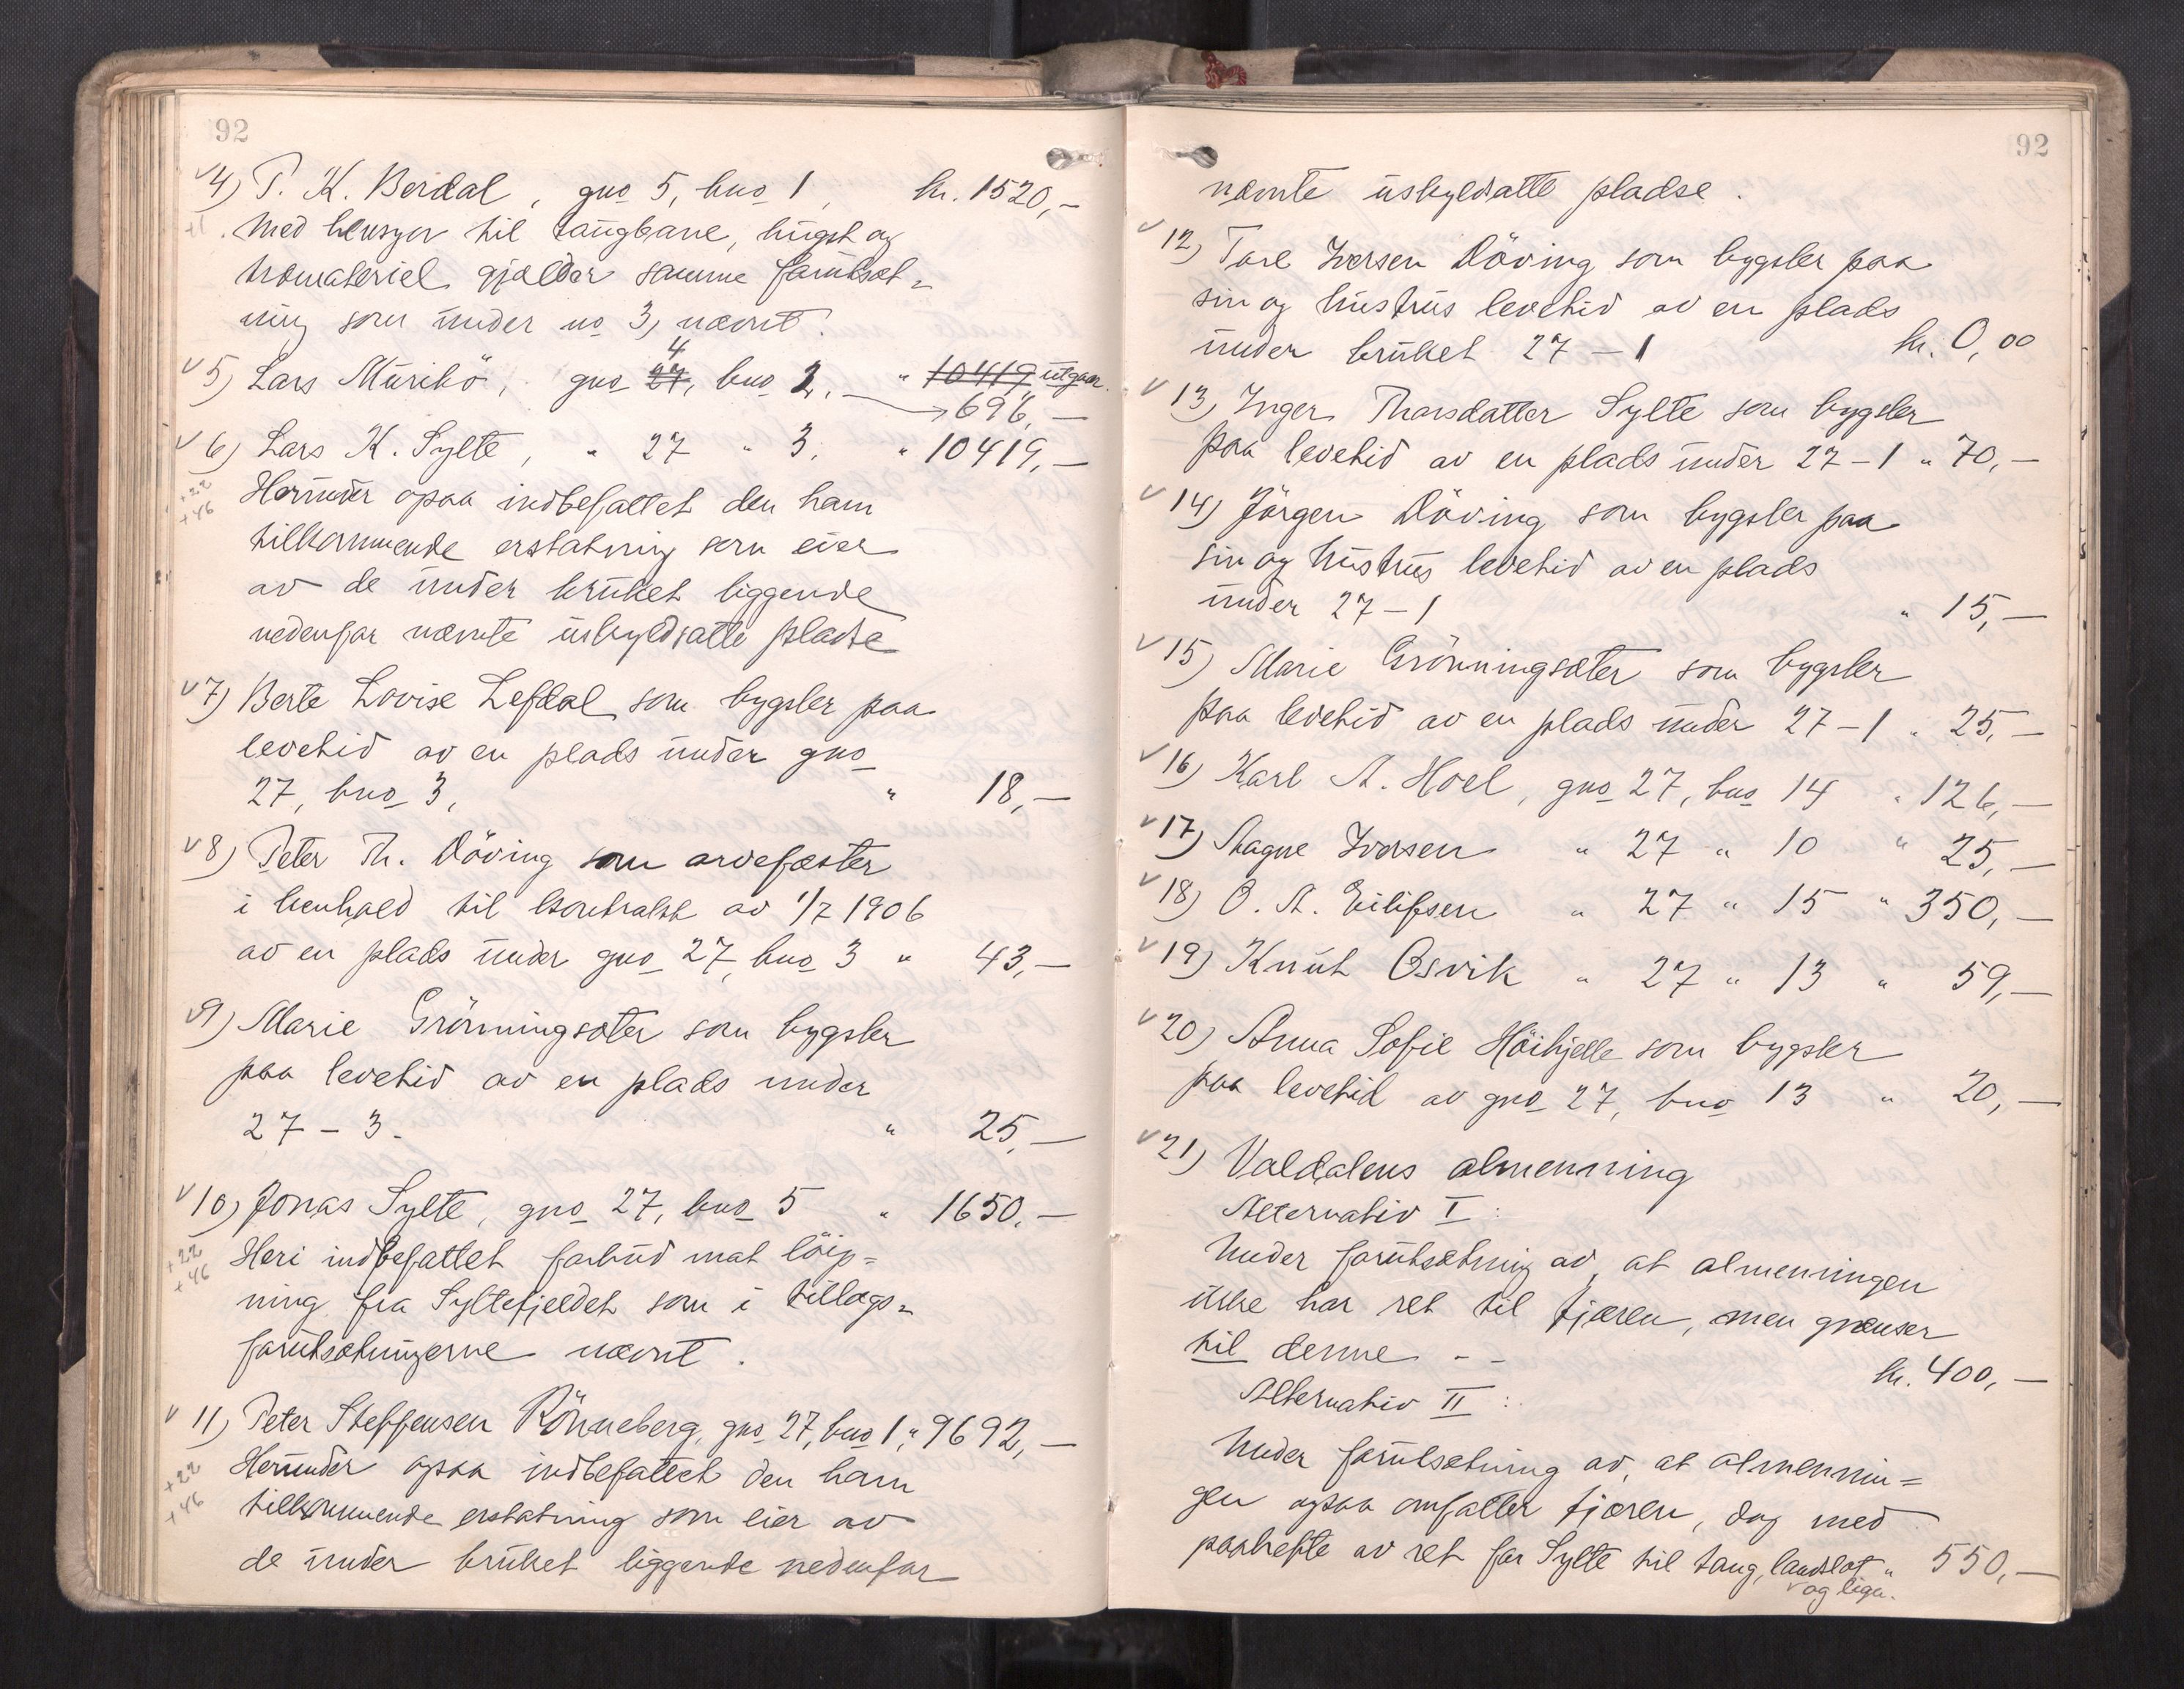 92
4) P. K. Berdal, gno 5, bno 1, kr. 1520,-
Med hensyn til taugbane, hugst og
træmateriel gjælder samme forutsæt-
ning som under no 3, nævnt.
5) Lars Muribö, gno 27, 4 bno 2, " 10419 utgaar.
696,-
6) Lars K. Sylte, " 27 " 3, " 10419,-
+22
+46
Herunder ogsaa indbefattet den ham
tilkommende erstatning som eier
av de under bruket liggende
nedenfor nævnte uskyldsatte pladse
7) Berte Lovise Lefdal som bygsler paa
levetid av en plads under gno
27, bno 3, " 18,-
8) Peter Th. Döving som arvefæster
i henhold til kontrakt av 1/7 1906
av en plads under gno 27, bno 3 " 43,-
9) Marie Grönningsæter som bygsler
paa levetid av en plads under
27-3. " 25,-
10) Jonas Sylte, gno 27, bno 5 " 1650,-
+22
+46
Heri indbefattet forbud mot löip-
ning fra Syltefjeldet som i tillægs-
forutsætningerne nævnt.
11) Peter Steffensen Rönneberg, gno 27, bno 1, " 9692,-
+22
+46
Herunder ogsaa indbefattet den ham
tilkommende erstatning som eier av
de under bruket liggende nedenfor
92
nævnte uskyldsatte pladse.
12) Tore Iversen Döving som bygsler paa
sin og hustrus levetid av en plads
under bruket 27-1 kr. 0,00
13) Inger Thorsdatter Sylte som bygsler
paa levetid av en plads under 27-1 " 70,-
14) Jörgen Döving som bygsler paa
sin og hustrus levetid av en plads
under 27-1 " 15,-
15) Marie Grönningsæter som bygsler
paa levetid av en plads under 27-1 " 25,-
16) Karl A. Hoel, gno 27, bno 14 " 126,-
17) Magne Iversen " 27 " 10 " 25,-
18) O. A. Eilifsen " 27 " 15 " 350,-
19) Knut Osvik " 27 " 13 " 59,-
20) Anna Sofie Höihjelle som bygsler
paa levetid av gno 27, bno 13 " 20,-
21) Valdalens almenning
Alternativ I:
Under forutsætning av, at almenningen
ikke har ret til fjæren, men grænser
til denne - - kr. 400,-
Alternativ II:
Under forutsætning av, at almennin-
gen ogsaa omfatter fjæren, dog med
paahefte av ret for Sylte til tang, landslot " 550,-
og lign.